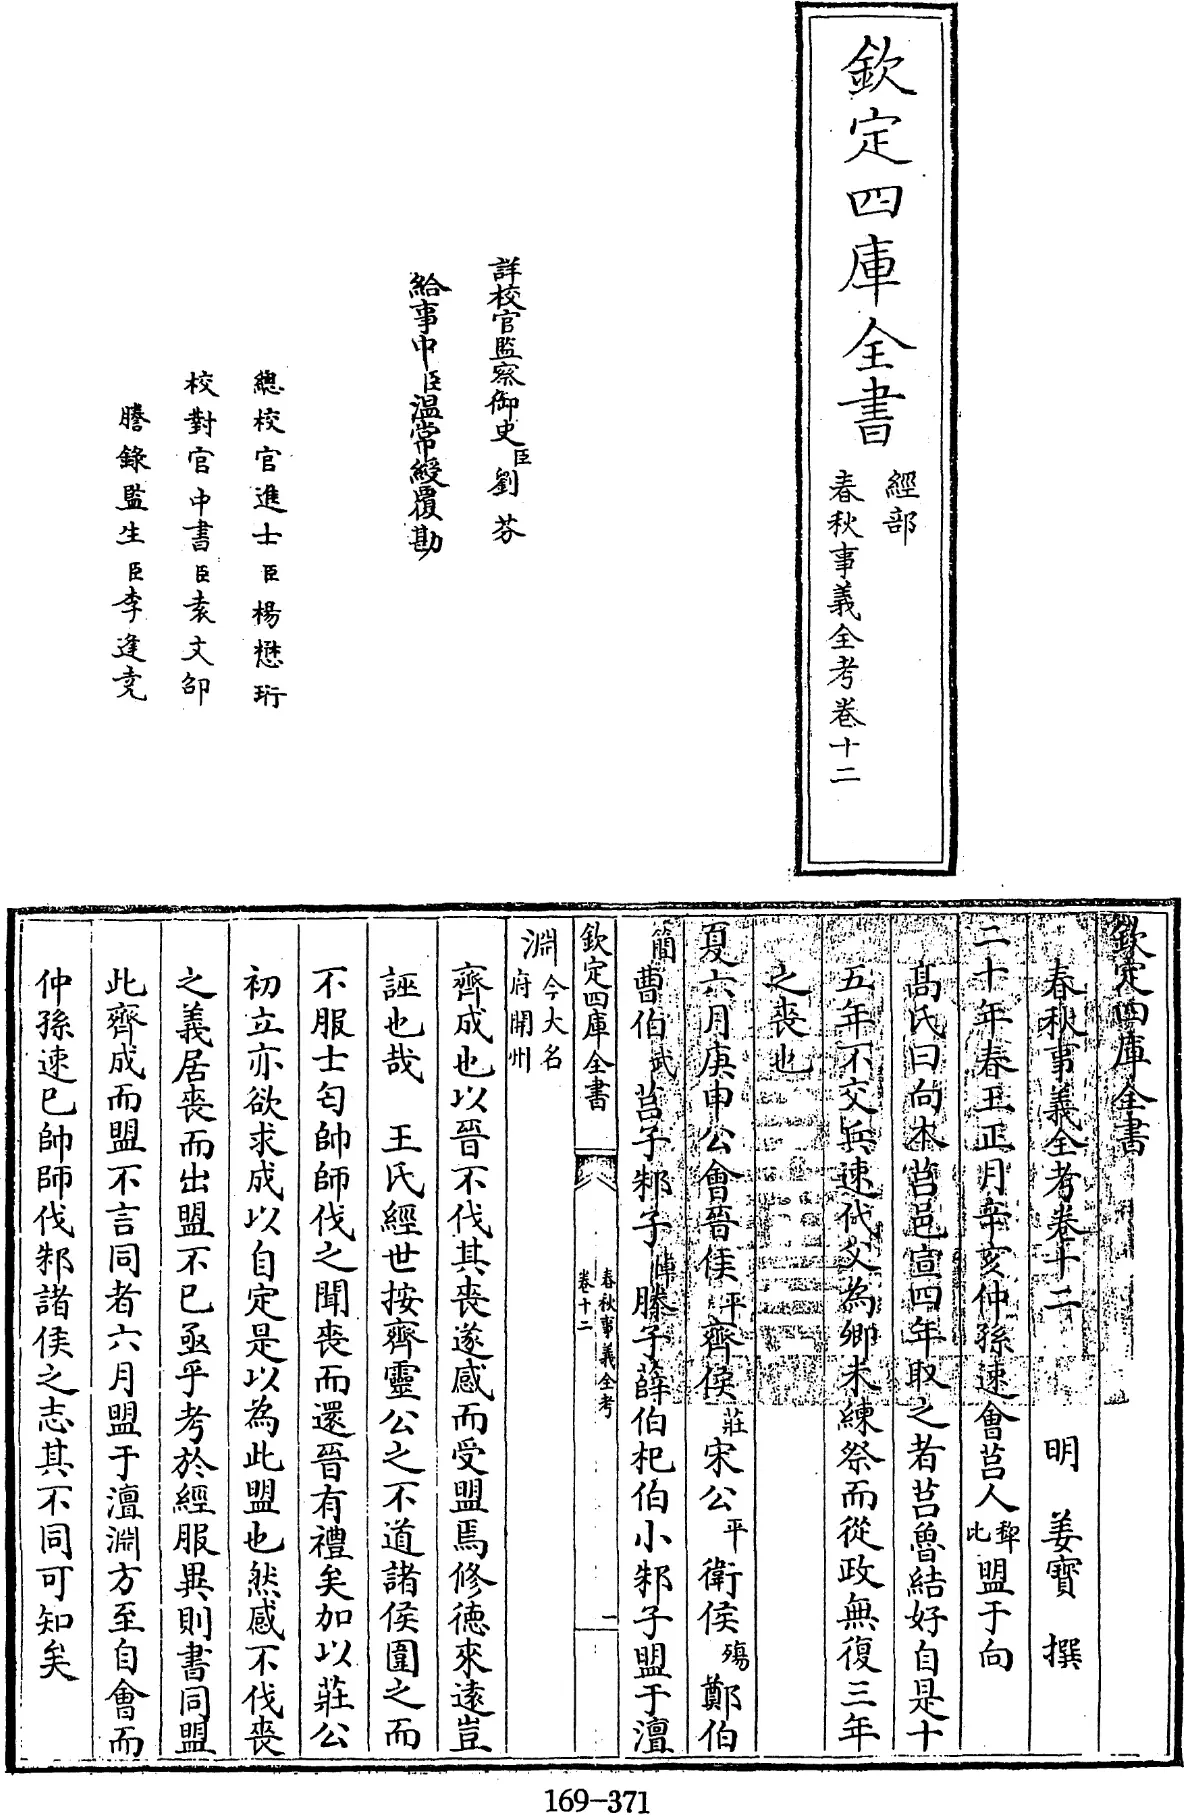 欽定四庫全書
經部
春秋事義全考卷十二
詳校官監察御史臣劉芬
給事中臣温常綬覆勘
總校官進士臣楊懋珩
校對官中書臣袁文卲
謄錄監生臣李逢堯
欽定四庫全書
春秋事義全考卷十二
明 姜寶 撰
二十年春王正月辛亥仲孫速會莒人犂比盟于向
髙氏曰向本莒邑宣四年取之者莒魯結好自是十
五年不交兵速代父為卿未練祭而從政無復三年
之喪也
夏六月庚申公會晉侯平齊侯莊宋公平衛侯殤鄭伯
簡曹伯武莒子邾子悼滕子薛伯杞伯小邾子盟于澶
欽定四庫全書
春秋事義全考
卷十二
一
淵今大名府開州
齊成也以晉不伐其喪遂感而受盟焉修德來遠豈
誣也哉 王氏經世按齊靈公之不道諸侯圍之而
不服士匄帥師伐之聞喪而還晉有禮矣加以莊公
初立亦欲求成以自定是以為此盟也然感不伐喪
之義居喪而出盟不已亟乎考於經服異則書同盟
此齊成而盟不言同者六月盟于澶淵方至自會而
仲孫速已帥師伐邾諸侯之志其不同可知矣
169-371